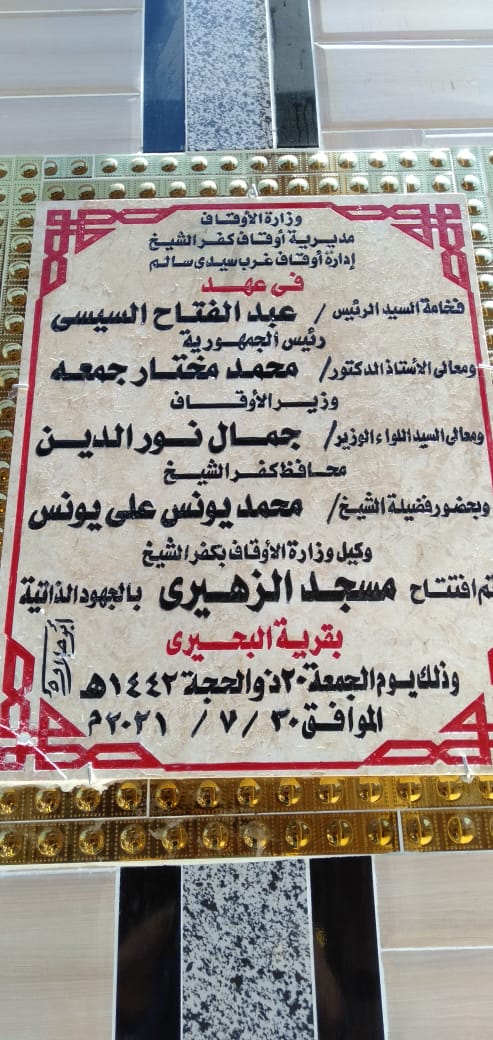 وزارة الأوقاف
مديرية أوقاف كفر الشيخ
إدارة أوقاف غرب سيدى سالم
فى عهد
فخامة السيد الرئيس / عبد الفتاح السيسى
رئيس الجمهورية
ومعالى الأستاذ الدكتور/ محمد مختار جمعه
وزير الأوقاف
ومعالى السيد اللواء الوزير/ جمال نور الدين
محافظ كفر الشيخ
وبحضور فضيلة الشيخ/ محمد يونس على يونس
وكيل وزارة الأوقاف بكفر الشيخ
تم افتتاح مسجد الزهيرى بالجهود الذاتية
بقرية البحيرى
وذلك يوم الجمعة ٢٠ ذو الحجة ١٤٤٢هـ
الموافق ٣٠ / ٧ / ٢٠٢١م